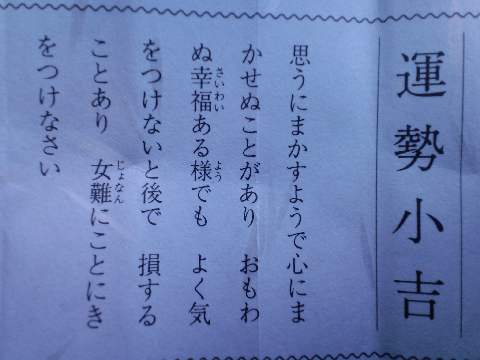 運勢小吉
思うにまかすようで心にま
かせぬことがあり　おもわ
ぬ幸福さいわいある様ようでも　よく気
をつけないと後で　損する
ことあり　女難じょなんにことにき
をつけなさい